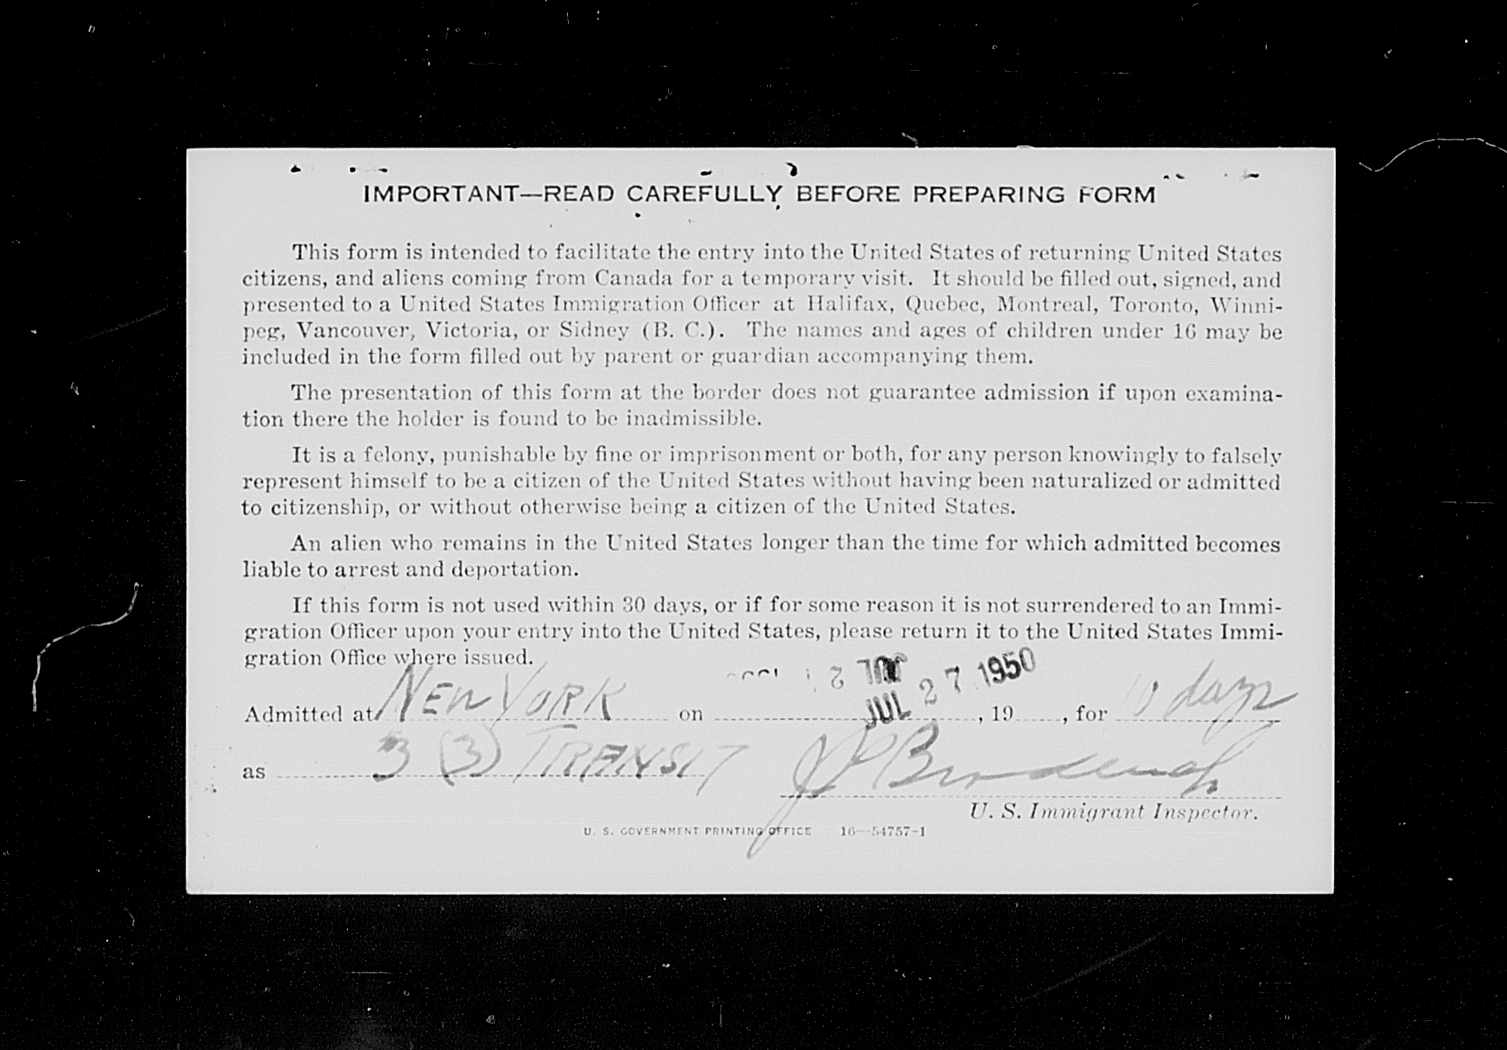 IMPORTANT—READ CAREFULLY BEFORE PREPARING FORM
This form is intended to facilitate the entry into the United States of returning United States
citizens, and aliens coming from Canada for a temporary visit. It should be filled out, signed, and
presented to a United States Immigration Officer at Halifax, Quebec, Montreal, Toronto, Winni-
peg, Vancouver, Victoria, or Sidney (B. C.). The names and ages of children under 16 may be
included in the form filled out by parent or guardian accompanying them.
The presentation of this form at the border does not guarantee admission if upon examina-
tion there the holder is found to be inadmissible.
It is a felony, punishable by fine or imprisonment or both, for any person knowingly to falsely
represent himself to be a citizen of the United States without having been naturalized or admitted
to citizenship, or without otherwise being a citizen of the United States.
An alien who remains in the United States longer than the time for which admitted becomes
liable to arrest and deportation.
If this form is not used within 30 days, or if for some reason it is not surrendered to an Immi-
gration Officer upon your entry into the United States, please return it to the United States Immi-
gration Office where issued.
JUL 27 1950
Admitted at NEW YORK on , 19 , for 10 days
as 3 (3) TRANSIT
U. S. Immigrant Inspector.
U. S. GOVERNMENT PRINTING OFFICE 16—54757-1